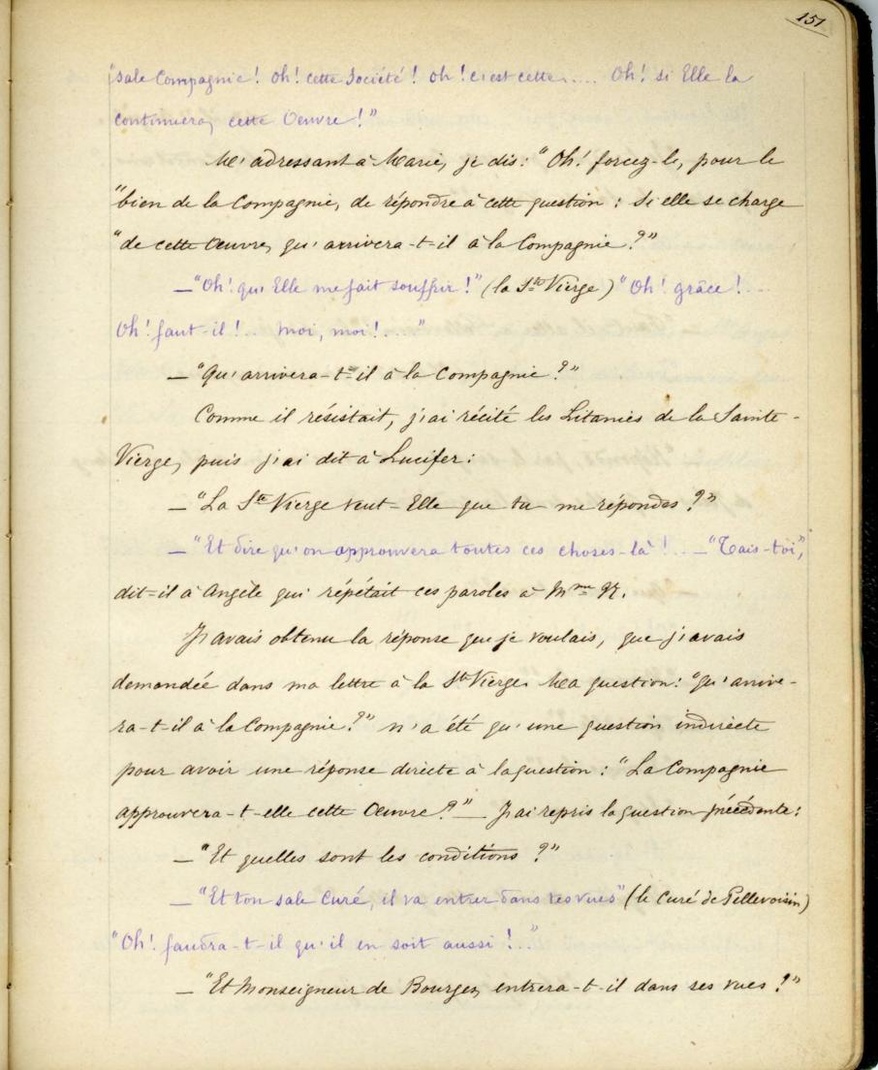 151
"sale Compagnie! Oh! cette Société! Oh! c'est cette..... Oh! si Elle la
continuera, cette Oeuvre!"
M'adressant à Marie, je dis: "Oh! forcez-le, pour le
"bien de la Compagnie, de répondre à cette question: Si elle se charge
"de cette Oeuvre, qu'arrivera-t-il à la Compagnie?"
—"Oh! qu'Elle me fait souffrir!" (la Ste Vierge) "Oh! grâce!...
Oh! faut-il!.. moi, moi!...."
—"Qu'arrivera-t-il à la Compagnie?"
Comme il résistait, j'ai récité les Litanies de la Sainte-
Vierge, puis j'ai dit à Lucifer:
—"La Ste Vierge veut-Elle que tu me répondes?"
—"Et dire qu'on approuvera toutes ces choses-là!...—"Tais-toi",
dit-il à Angèle qui répétait ces paroles à Mme K.
J'avais obtenu la réponse que je voulais, que j'avais
demandée dans ma lettre à la Ste Vierge. Ma question: "Qu'arrive-
ra-t-il à la Compagnie?" n'a été qu'une question indirecte
pour avoir une réponse directe à la question: "La Compagnie
approuvera-t-elle cette Oeuvre?"— J'ai repris la question précédente:
—"Et quelles sont les conditions?"
—"Et ton sale Curé, il va entrer dans tes vues" (le Curé de Pellevoisin)
"Oh! faudra-t-il qu'il en soit aussi!.."
—"Et Monseigneur de Bourges, entrera-t-il dans ses vues?"